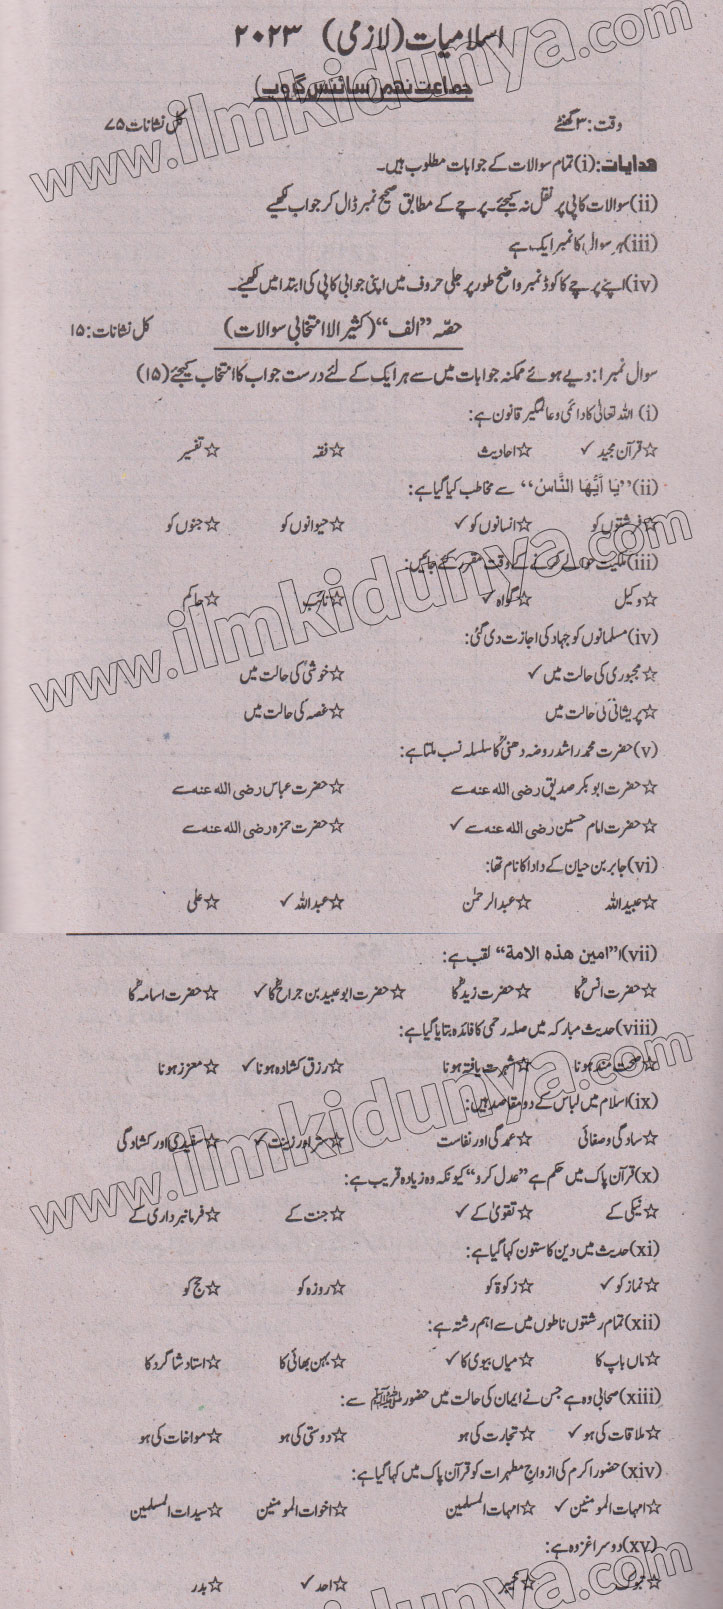 اسلامیات (لازمی) ۲۰۲۳
جماعت نہم (سائنس گروپ)
وقت: ۳ گھنٹے کل نشانات ۷۵
ھدایات: (i) تمام سوالات کے جوابات مطلوب ہیں۔
(ii) سوالات کاپی پر نقل نہ کیجئے۔ پرچے کے مطابق صحیح نمبر ڈال کر جواب لکھیے
(iii) ہر سوال کا نمبر ایک ہے
(iv) اپنے پرچے کا کوڈ نمبر واضح طور پر جلی حروف میں اپنی جوابی کاپی کی ابتدا میں لکھیے۔
حصّہ ”الف“ (کثیر الا انتخابی سوالات) کل نشانات: ۱۵
سوال نمبر ۱: دیے ہوئے ممکنہ جوابات میں سے ہر ایک کے لئے درست جواب کا انتخاب کیجئے (۱۵)
(i) اللہ تعالیٰ کا دائمی و عالمگیر قانون ہے:
☆ قرآن مجید ✓ ☆ احادیث ☆ فقہ ☆ تفسیر
(ii) ”یَا أَیُّهَا النَّاسُ“ سے مخاطب کیا گیا ہے:
☆ فرشتوں کو ☆ انسانوں کو ✓ ☆ حیوانوں کو ☆ جنوں کو
(iii) ملکیت حوالے کرنے کے وقت مقرر کئے جائیں:
☆ وکیل ☆ گواہ ✓ ☆ نائب ☆ حاکم
(iv) مسلمانوں کو جہاد کی اجازت دی گئی:
☆ مجبوری کی حالت میں ✓ ☆ خوشی کی حالت میں
☆ پریشانی کی حالت میں ☆ غصہ کی حالت میں
(v) حضرت محمد راشد روضہ دھنیؒ کا سلسلہ نسب ملتا ہے:
☆ حضرت ابو بکر صدیق رضی اللہ عنہ سے ☆ حضرت عباس رضی اللہ عنہ سے
☆ حضرت امام حسین رضی اللہ عنہ سے ✓ ☆ حضرت حمزہ رضی اللہ عنہ سے
(vi) جابر بن حیان کے دادا کا نام تھا:
☆ عبیداللہ ☆ عبدالرحمٰن ☆ عبداللہ ✓ ☆ علی
(vii) ”امین ھذہ الامة“ لقب ہے:
☆ حضرت انسؓ کا ☆ حضرت زیدؓ کا ☆ حضرت ابو عبید بن جراحؓ کا ✓ ☆ حضرت اسامہؓ کا
(viii) حدیث مبارکہ میں صلہ رحمی کا فائدہ بتایا گیا ہے:
☆ صحت مند ہونا ☆ شہرت یافتہ ہونا ☆ رزق کشادہ ہونا ✓ ☆ معزز ہونا
(ix) اسلام میں لباس کے دو مقاصد ہیں:
☆ سادگی و صفائی ☆ عمدگی اور نفاست ☆ ستر اور زینت ✓ ☆ سفیدی اور کشادگی
(x) قرآن پاک میں حکم ہے ”عدل کرو“ کیونکہ وہ زیادہ قریب ہے:
☆ نیکی کے ☆ تقویٰ کے ✓ ☆ جنت کے ☆ فرمانبرداری کے
(xi) حدیث میں دین کا ستون کہا گیا ہے:
☆ نماز کو ✓ ☆ زکوٰة کو ☆ روزہ کو ☆ حج کو
(xii) تمام رشتوں ناطوں میں سے اہم رشتہ ہے:
☆ ماں باپ کا ☆ میاں بیوی کا ✓ ☆ بہن بھائی کا ☆ استاد شاگرد کا
(xiii) صحابی وہ ہے جس نے ایمان کی حالت میں حضور ﷺ سے:
☆ ملاقات کی ہو ✓ ☆ تجارت کی ہو ☆ دوستی کی ہو ☆ مواخات کی ہو
(xiv) حضور اکرم کی ازواج مطہرات کو قرآن پاک میں کہا گیا ہے:
☆ امہات المومنین ✓ ☆ امہات المسلمین ☆ اخوات المومنین ☆ سیدات المسلمین
(xv) دوسرا غزوہ ہے:
☆ تبوک ☆ خیبر ☆ احد ✓ ☆ بدر
www.ilmkidunya.com
www.ilmkidunya.com
www.ilmkidunya.com